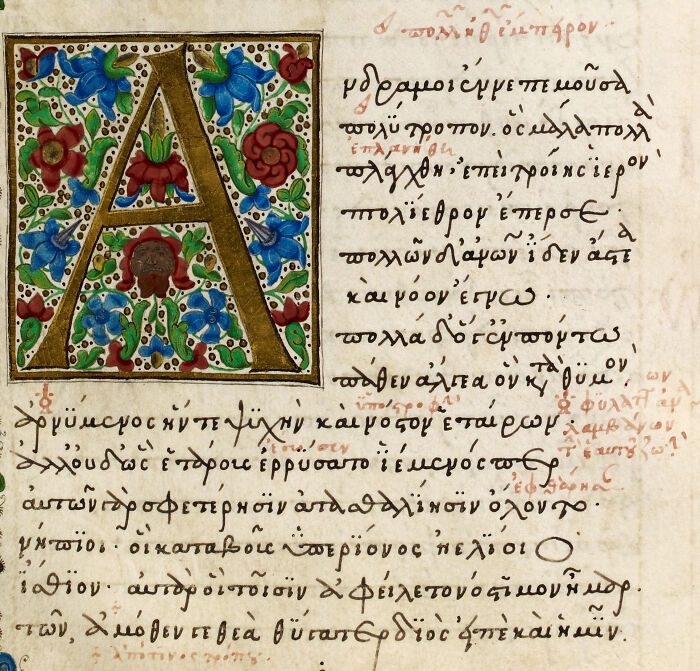 Ἄ
νδρα μοι ἔννεπε μοῦσα
πολύτροπον. ὃς μάλα πολλὰ
ἐπλανήθη
πλάγχθη· ἐπεὶ τροίης ἱερὸν
πτολίεθρον ἔπερσε·
πολλῶν δ' ἀνθρώπων ἴδεν ἄστεα
καὶ νόον ἔγνω·
πολλὰ δ' ὅγ' ἐν πόντω
πάθεν ἄλγεα ὃν κατὰ θυμόν.
ὑποστροφὴν
ἀρνύμενος ἥν τε ψυχὴν καὶ νόστον ἑταίρων
ἀλλ' οὐδ' ὣς ἑτάροις ἐρρύσατο ἱέμενός περ
ἐφθάρησαν
αὐτῶν γὰρ σφετέρησιν ἀτασθαλίησιν ὄλοντο·
νήπιοι· οἳ κατὰ βοῦς ὑπερίονος ἠελίοιο
ἴσθιον· αὐτὰρ ὁ τοῖσιν ἀφείλετο νόστιμον ἦμαρ·
τῶν, ἁμόθεν γε θεὰ θύγατερ διὸς εἰπὲ καὶ ἡμῖν.
ἀπό τινος τρόπου